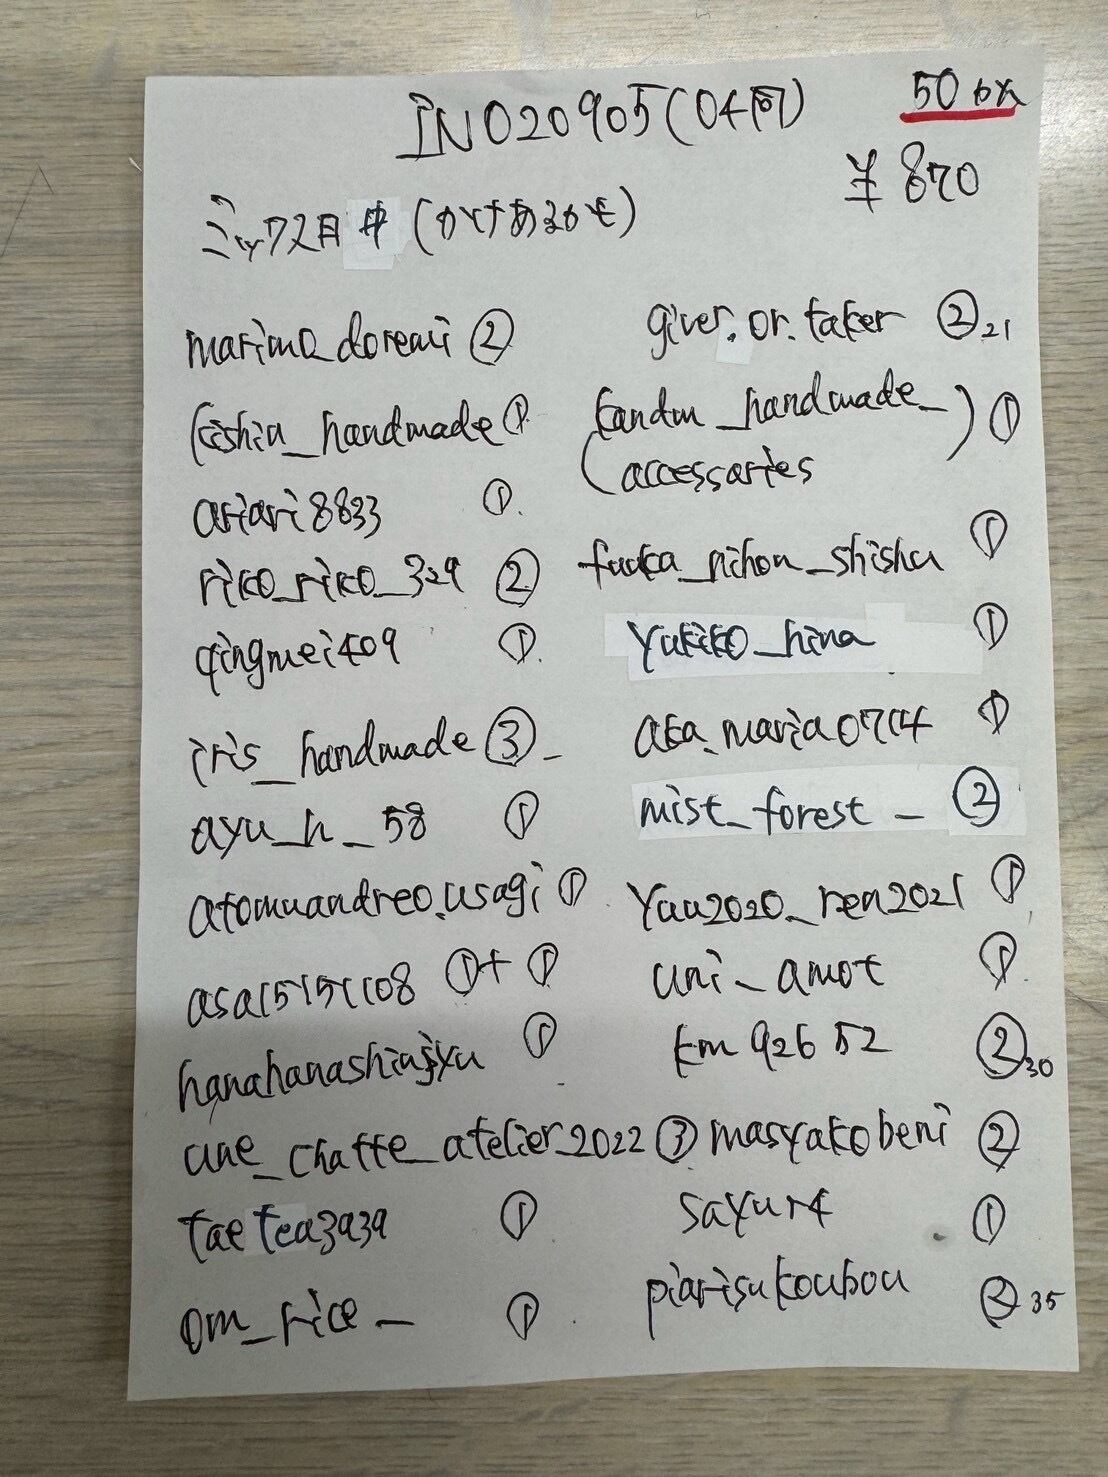 INO20905(04同)
50 bx
¥870
ミックス月丼(かけあるかも)
marimo_doremi ②
kishiu_handmade ①
ariari8833 ①
riko_riko_329 ②
qingmei409 ①
iris_handmade ③_
ayu_h_58 ①
atomuandreo.usagi ①
asa15151108 ①+①
hanahanashinjyu ①
une_chatte_atelier2022 ③
taetea3939 ①
om_rice_ ①
giver.or.taker ② 21
(kandm_handmade_
accessaries) ①
fuuka_nihon_shishu ①
yukiko_hina ①
aka.maria0714 ①
mist_forest_ ②
yuu2020_ren2021 ①
uni_amot ①
km92652 ② 30
masyakobeni ②
sayur4 ①
piarisukoubou ② 35